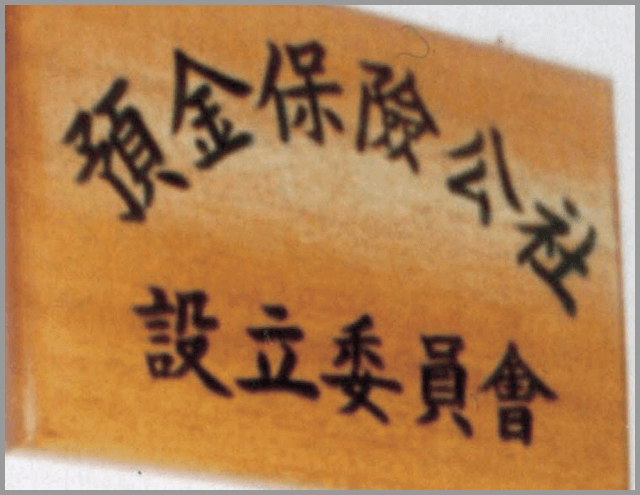 預金保險公社
設立委員會